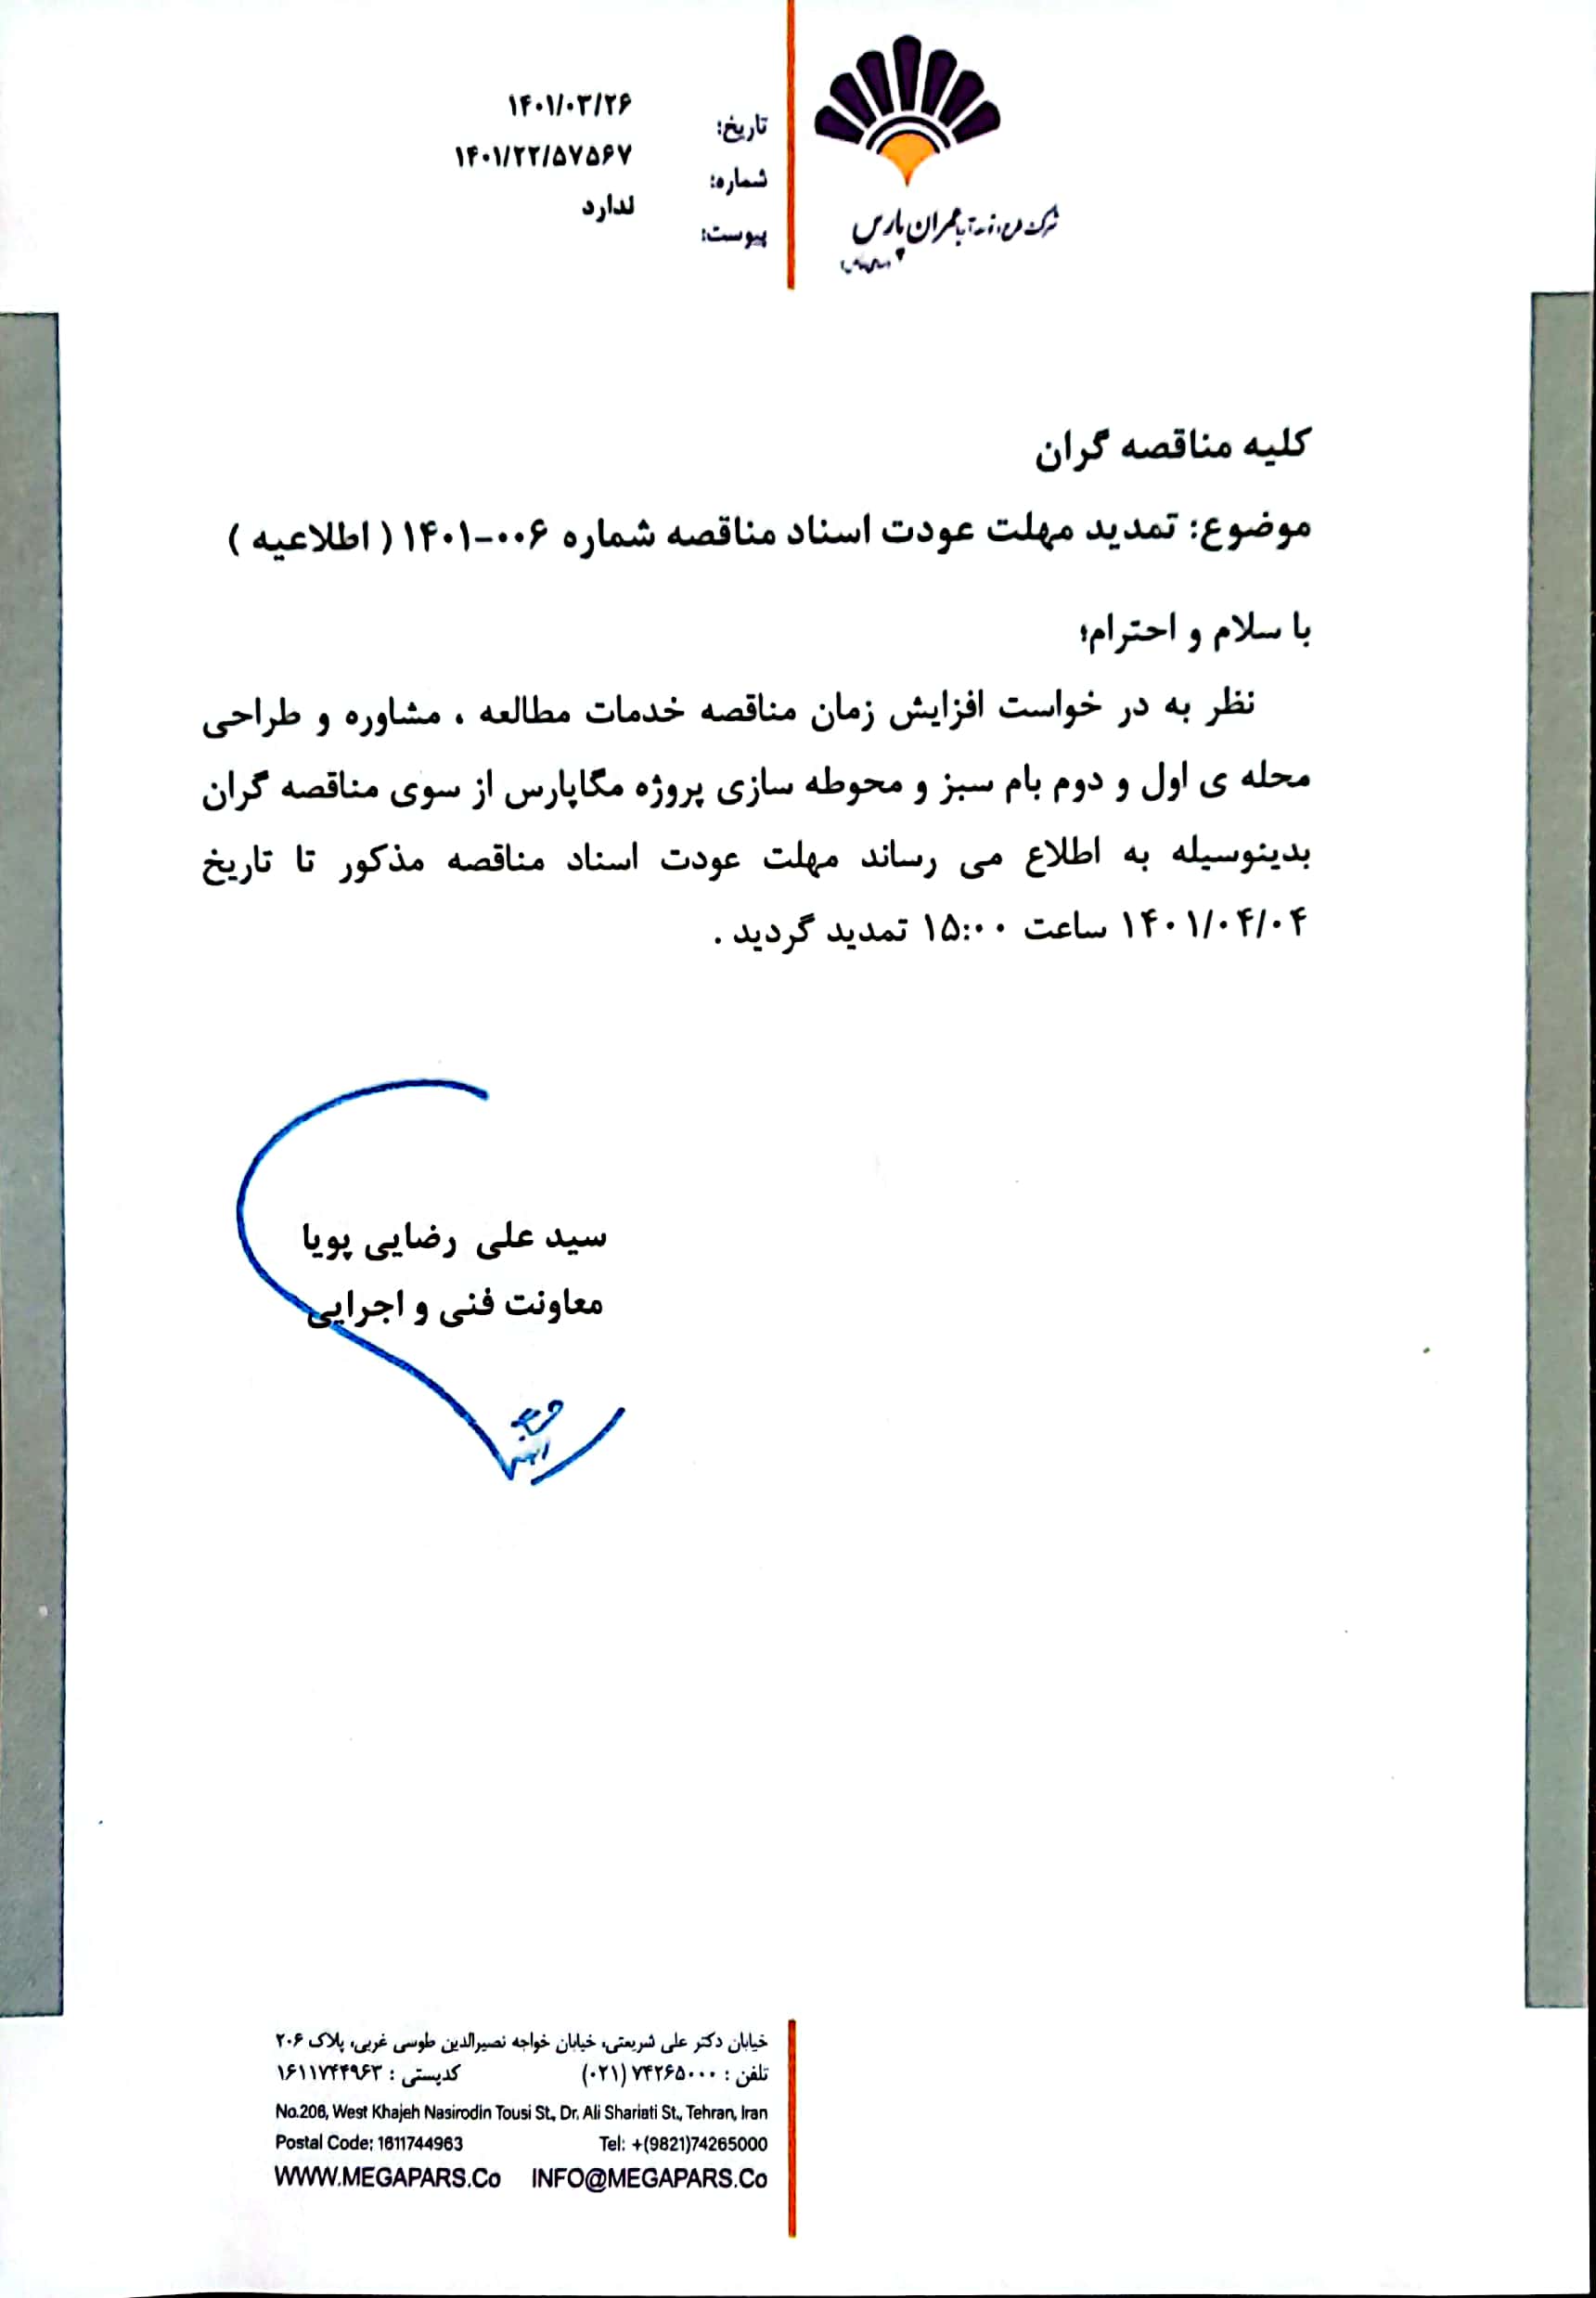 تاریخ: ۱۴۰۱/۰۳/۲۶
شماره: ۱۴۰۱/۲۲/۵۷۵۶۷
پیوست: ندارد
شرکت عمران پارس
کلیه مناقصه گران
موضوع: تمدید مهلت عودت اسناد مناقصه شماره ۰۰۶-۱۴۰۱ ( اطلاعیه )
با سلام و احترام؛
نظر به در خواست افزایش زمان مناقصه خدمات مطالعه ، مشاوره و طراحی
محله ی اول و دوم بام سبز و محوطه سازی پروژه مگاپارس از سوی مناقصه گران
بدینوسیله به اطلاع می رساند مهلت عودت اسناد مناقصه مذکور تا تاریخ
۱۴۰۱/۰۴/۰۴ ساعت ۱۵:۰۰ تمدید گردید .
سید علی رضایی پویا
معاونت فنی و اجرایی
خیابان دکتر علی شریعتی، خیابان خواجه نصیرالدین طوسی غربی، پلاک ۲۰۶
تلفن : ۷۴۲۶۵۰۰۰ (۰۲۱) کدپستی : ۱۶۱۱۷۴۴۹۶۳
No.206, West Khajeh Nasirodin Tousi St., Dr. Ali Shariati St., Tehran, Iran
Postal Code: 1611744963 Tel: +(9821)74265000
WWW.MEGAPARS.Co INFO@MEGAPARS.Co